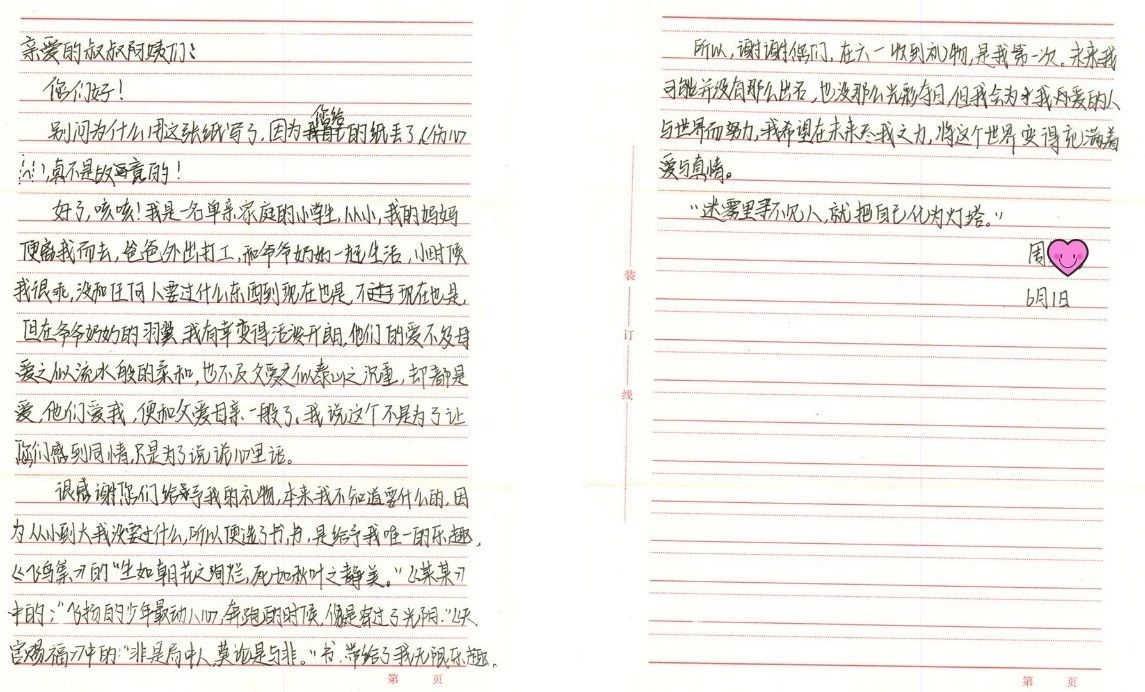 亲爱的叔叔阿姨们：
您们好！
别问为什么用这张纸写了，因为您给的纸丢了（伤心
……），真不是故意的！
好了，咳咳！我是一名单亲家庭的小学生，从小，我的妈妈
便离我而去，爸爸外出打工，和爷爷奶奶一起生活，小时候
我很乖，没和任何人要过什么东西到现在也是，不过现在也是，
但在爷爷奶奶的羽翼，我有幸变得活泼开朗，他们的爱不及母
爱之似流水般的柔和，也不及父爱似泰山之沉重，却都是
爱，他们爱我，便和父爱母亲一般了。我说这个不是为了让
您们感到同情，只是为了说说心里话。
很感谢您们给予我的礼物，本来我不知道要什么的，因
为从小到大我没要过什么，所以便选了书，书，是给予我唯一的乐趣，
《飞鸟集》的“生如朝花之绚烂，死如秋叶之静美。”《某某》
中的：“飞扬的少年最动人心，奔跑的时候，像是穿过了光阴。”《天
官赐福》中的“非是局中人，莫论是与非。”书，带给了我无限乐趣。
第 页
所以，谢谢您们，在六一收到礼物，是我第一次。未来我
可能并没有那么出名，也没那么光彩夺目，但我会为了我所爱的人
与世界而努力，我希望在未来尽我之力，将这个世界变得充满着
爱与真情。
“迷雾里寻不见人，就把自己化为灯塔。”
周
6月1日
装
订
线
第 页